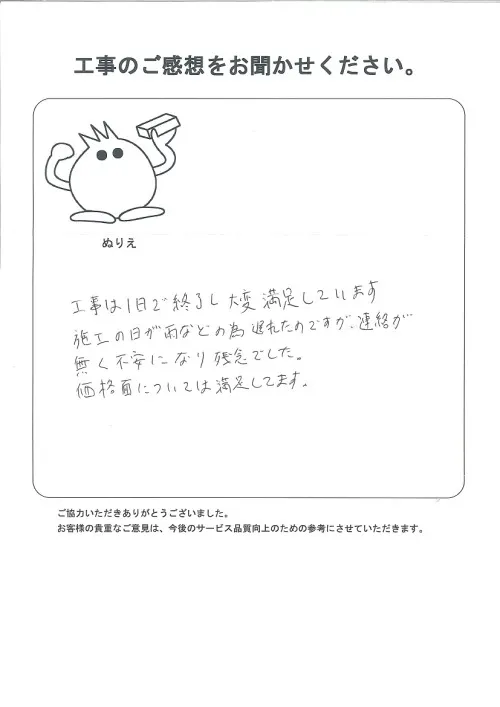 工事のご感想をお聞かせください。
ぬりえ
工事は1日で終了し大変満足しています
施工の日が雨などの為遅れたのですが、連絡が
無く不安になり残念でした。
価格面については満足してます。
ご協力いただきありがとうございました。
お客様の貴重なご意見は、今後のサービス品質向上のための参考にさせていただきます。